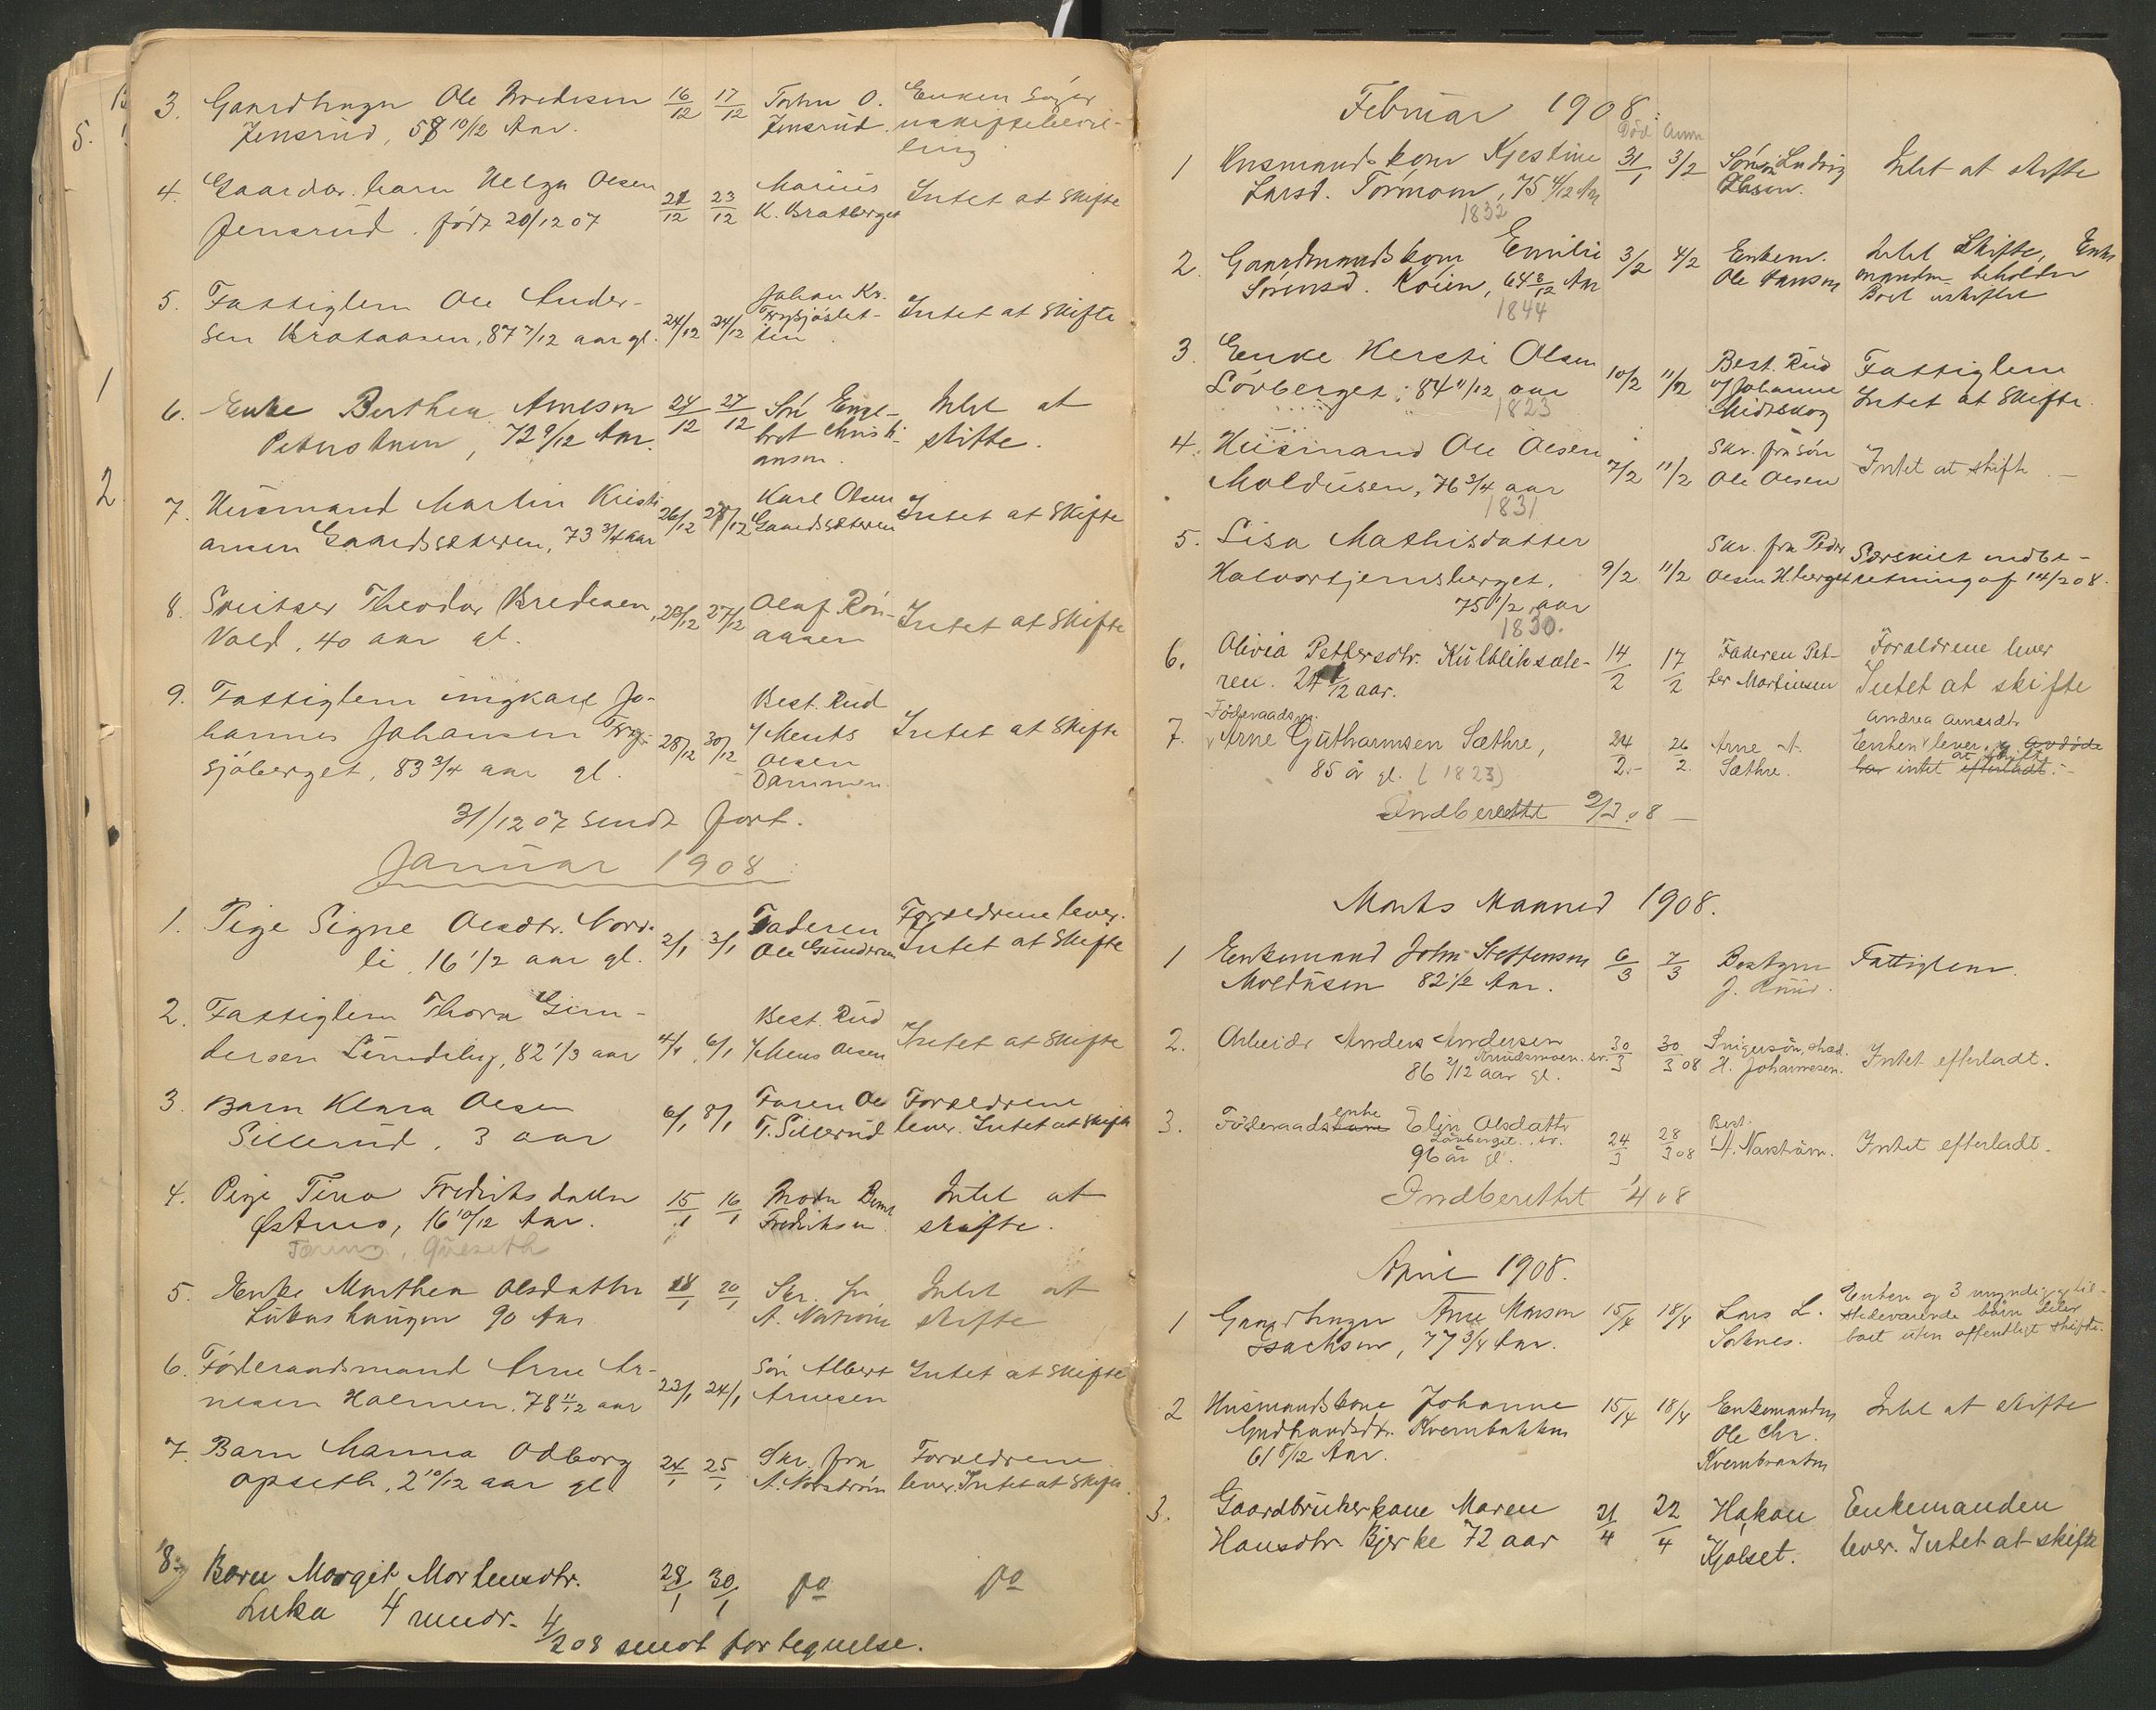 3. Gaardbruger Ole Bredesen 16/12 17/12 John O. Enken søger
Jensrud, 58 10/12 Aar. Jensrud. uskiftebevil-
ling
4. Gaardbr. barn Helga Olsen 21/12 23/12 Marius Intet at skifte
Jensrud. født 20/12 07 K. Bratberget
5. Fattiglem Ole Ander- 24/12 24/12 Johan Kr. Intet at skifte
sen Brataasen, 87 7/12 aar gl.
6. Enke Berthea Arnesen 24/12 27/12 Søn Enge- Intet at
72 9/12 Aar. bret Christi- skifte.
ansen.
7. Husmand Martin Kristi- 26/12 28/12 Karl Olsen Intet at skifte
ansen Gaardssæteren, 73 3/4 aar Gaardssæteren
8. Theodor Bredesen, 23/12 27/12 Olaf Røn- Intet at skifte
Vold, 40 aar gl. aasen
9. Fattiglem ungkarl Jo- 28/12 30/12 Best. Rud Intet at skifte
hannes Johansen Tryg- v/ Ments
sjøberget, 83 3/4 aar gl. Olsen
Dammen
31/12 07 sendt fort.
Januar 1908.
1. Pige Signe Olsdtr. Nord- 2/1 3/1 Faderen Forældrene lever.
li, 16 1/2 aar gl. Ole Gundersen Intet at skifte
2. Fattiglem Thora Gun- 4/1 6/1 Best. Rud Intet at skifte
dersen Lundeby, 82 1/3 aar v/ Mens Olsen
3. Barn Klara Olsen 6/1 8/1 Faren Ole Forældrene
Sillerud, 3 aar T. Sillerud lever. Intet at skifte
4. Pige Tina Fredriksdatter 15/1 16/1 Broder Bernt Intet at
Østmo, 16 10/12 Aar. Fredriksen skifte.
5. Enke Marthea Olsdatter 18/1 20/1 Skr. fra Intet at
Lukashaugen 90 Aar A. Nordstrøm skifte
6. Føderaadsmand Arne Ar- 23/1 24/1 Søn Albert Intet at skifte
nesen Holmen, 78 11/12 aar Arnesen
7. Barn Manna Odborg 24/1 25/1 Skr. fra Forældrene
Opseth, 2 10/12 aar gl. A. Nordstrøm lever. Intet at skifte.
8. Barn Margit Mortensdtr. 28/1 30/1 do do
Luka 4 mndr.
4/2 08 sendt fortegnelse.
Februar 1908.
Død Anm
1 Husmandskone Kjestine 31/1 3/2 Søn Ludvig Intet at skifte
Larsd. Tørmoen, 75 4/12 Aar Olsen.
1832
2. Gaardmandskone Emilie 3/2 4/2 Enkem. Intet Skifte, Enke
Sørensd. Køien, 64 8/12 Aar Ole Hansen manden beholder
1844 Boet uskiftet
3. Enke Kersti Olsen 10/2 11/2 Best. Rud Fattiglem
Løvberget, 84 11/12 aar v/ Johanne Intet at skifte.
1823 Midtskog
4. Husmand Ole Olsen 7/2 11/2 Skr. fra søn Intet at skifte
Moldusen, 76 3/4 aar Ole Olsen
1831
5. Lisa Mathisdatter Skr. fra Peder Særskilt indbe-
Halvortjernsberget, 9/2 11/2 Olsen H.berget retning af 14/2 08.
75 1/2 aar
1830.
6. Olivia Pettersdtr. Kulbliksæte- 14/2 17/2 Faderen Pet- Foraldrene lever
ren. 24 /12 aar. ter Martinsen Intet at skifte
Føderaadsm. Andrea Arnesdtr
7. Arne Guthormsen Sæthre, 24/2 26/2 Arne A. Enken lever, og avdøde
85 år gl. (1823) Sæthre. har intet at skifte efterladt.
Indberettet 2/3 08
Marts Maaned 1908.
1 Enkemand John Steffensen 6/3 7/3 Bestyrer Fattiglem.
Moldusen 82 1/2 Aar. J. Ruud.
2. Arbeider Anders Andersen 30/3 30/3 08 Svigersøn, skræd. Intet efterladt.
Knudsmoen 86 2/12 aar gl. H. Johannesen.
3. Føderaadskone enke Elin Olsdattr 24/3 28/3 08 Best. Intet efterladt.
Løvberget 96 år gl. A. Norström.
Indberettet 1/4 08
April 1908.
1 Gaardbruger Arne Monsen 15/4 18/4 Lars L. Enken og 3 myndige, til-
Isachsen, 77 3/4 Aar. Soknes. stedeværende børn deler
boet uten offentligt skifte.
2 Husmandskone Johanne 15/4 18/4 Enkemanden Intet at skifte
Gudbrandsdtr. Kvernbakken Ole Chr.
61 8/12 Aar. Kvernbranten
3. Gaardbrukerkone Maren 21/4 22/4 Håkon Enkemanden
Hansdtr. Bjerke 72 aar Kjølset. lever. Intet at skifte